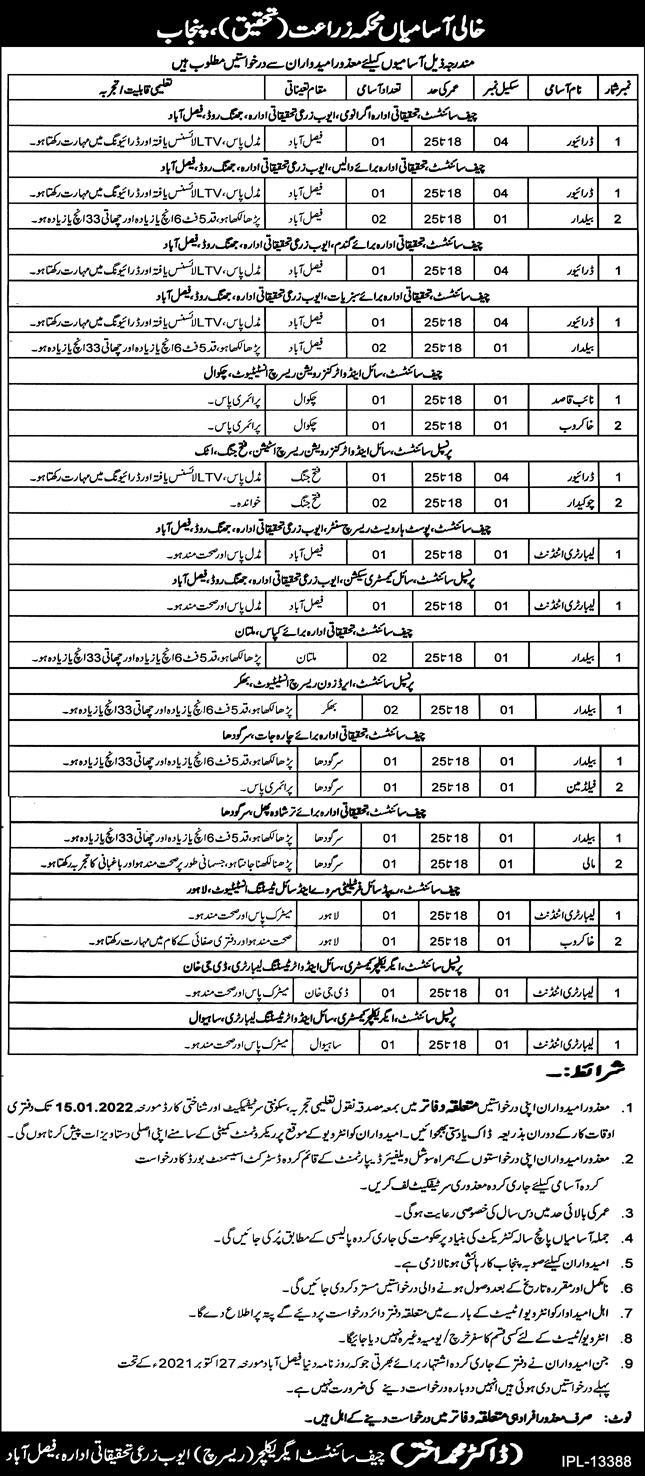 خالی آسامیاں محکمہ زراعت (تحقیق)، پنجاب
مندرجہ ذیل آسامیوں کیلئے معذور امیدواران سے درخواستیں مطلوب ہیں
نمبر شمار نام آسامی سکیل نمبر عمر کی حد تعداد آسامی مقام تعیناتی تعلیمی قابلیت/تجربہ
چیف سائنٹسٹ، تحقیقاتی ادارہ اگرانومی، ایوب زرعی تحقیقاتی ادارہ، جھنگ روڈ، فیصل آباد
1 ڈرائیور 04 18 تا 25 01 فیصل آباد مڈل پاس، LTV لائسنس یافتہ اور ڈرائیونگ میں مہارت رکھتا ہو۔
چیف سائنٹسٹ، تحقیقاتی ادارہ برائے دالیں، ایوب زرعی تحقیقاتی ادارہ، جھنگ روڈ، فیصل آباد
1 ڈرائیور 04 18 تا 25 01 فیصل آباد مڈل پاس، LTV لائسنس یافتہ اور ڈرائیونگ میں مہارت رکھتا ہو۔
2 بیلدار 01 18 تا 25 02 فیصل آباد پڑھا لکھا ہو، قد 5 فٹ 6 انچ یا زیادہ اور چھاتی 33 انچ یا زیادہ ہو۔
چیف سائنٹسٹ، تحقیقاتی ادارہ برائے گندم، ایوب زرعی تحقیقاتی ادارہ، جھنگ روڈ، فیصل آباد
1 ڈرائیور 04 18 تا 25 01 فیصل آباد مڈل پاس، LTV لائسنس یافتہ اور ڈرائیونگ میں مہارت رکھتا ہو۔
چیف سائنٹسٹ، تحقیقاتی ادارہ برائے سبزیات، ایوب زرعی تحقیقاتی ادارہ، جھنگ روڈ، فیصل آباد
1 ڈرائیور 04 18 تا 25 01 فیصل آباد مڈل پاس، LTV لائسنس یافتہ اور ڈرائیونگ میں مہارت رکھتا ہو۔
بیلدار 01 18 تا 25 02 فیصل آباد پڑھا لکھا ہو، قد 5 فٹ 6 انچ یا زیادہ اور چھاتی 33 انچ یا زیادہ ہو۔
چیف سائنٹسٹ، سائل اینڈ واٹر کنزرویشن ریسرچ انسٹیٹیوٹ، چکوال
1 نائب قاصد 01 18 تا 25 01 چکوال پرائمری پاس۔
2 خاکروب 01 18 تا 25 01 چکوال پرائمری پاس۔
پرنسپل سائنٹسٹ، سائل اینڈ واٹر کنزرویشن ریسرچ اسٹیشن، فتح جنگ، اٹک
1 ڈرائیور 04 18 تا 25 01 فتح جنگ مڈل پاس، LTV لائسنس یافتہ اور ڈرائیونگ میں مہارت رکھتا ہو۔
2 چوکیدار 01 18 تا 25 02 فتح جنگ خواندہ۔
چیف سائنٹسٹ، پوسٹ ہارویسٹ ریسرچ سنٹر، ایوب زرعی تحقیقاتی ادارہ، جھنگ روڈ، فیصل آباد
1 لیبارٹری اٹنڈنٹ 01 18 تا 25 01 فیصل آباد مڈل پاس اور صحت مند ہو۔
پرنسپل سائنٹسٹ، سائل کیمسٹری سیکشن، ایوب زرعی تحقیقاتی ادارہ، جھنگ روڈ، فیصل آباد
1 لیبارٹری اٹنڈنٹ 01 18 تا 25 01 فیصل آباد مڈل پاس اور صحت مند ہو۔
چیف سائنٹسٹ، تحقیقاتی ادارہ برائے کپاس، ملتان
1 بیلدار 01 18 تا 25 02 ملتان پڑھا لکھا ہو، قد 5 فٹ 6 انچ یا زیادہ اور چھاتی 33 انچ یا زیادہ ہو۔
پرنسپل سائنٹسٹ، ایرڈ زون ریسرچ انسٹیٹیوٹ، بھکر
1 بیلدار 01 18 تا 25 02 بھکر پڑھا لکھا ہو، قد 5 فٹ 6 انچ یا زیادہ اور چھاتی 33 انچ یا زیادہ ہو۔
چیف سائنٹسٹ، تحقیقاتی ادارہ برائے چارہ جات، سرگودھا
1 بیلدار 01 18 تا 25 01 سرگودھا پڑھا لکھا ہو، قد 5 فٹ 6 انچ یا زیادہ اور چھاتی 33 انچ یا زیادہ ہو۔
2 فیلڈ مین 01 18 تا 25 01 سرگودھا پرائمری پاس۔
چیف سائنٹسٹ، تحقیقاتی ادارہ برائے ترشاوہ پھل، سرگودھا
1 بیلدار 01 18 تا 25 01 سرگودھا پڑھا لکھا ہو، قد 5 فٹ 6 انچ یا زیادہ اور چھاتی 33 انچ یا زیادہ ہو۔
2 مالی 01 18 تا 25 01 سرگودھا پڑھنا لکھنا جانتا ہو، جسمانی طور پر صحت مند ہو اور باغبانی کا تجربہ رکھتا ہو۔
چیف سائنٹسٹ، ریپڈ سائل فرٹیلیٹی سروے اینڈ سائل ٹیسٹنگ انسٹیٹیوٹ، لاہور
1 لیبارٹری اٹنڈنٹ 01 18 تا 25 01 لاہور میٹرک پاس اور صحت مند ہو۔
2 خاکروب 01 18 تا 25 01 لاہور صحت مند ہو اور دفتری صفائی کے کام میں مہارت رکھتا ہو۔
پرنسپل سائنٹسٹ، ایگریکلچر کیمسٹری، سائل اینڈ واٹر ٹیسٹنگ لیبارٹری، ڈی جی خان
1 لیبارٹری اٹنڈنٹ 01 18 تا 25 01 ڈی۔جی خان میٹرک پاس اور صحت مند ہو۔
پرنسپل سائنٹسٹ، ایگریکلچر کیمسٹری، سائل اینڈ واٹر ٹیسٹنگ لیبارٹری، ساہیوال
1 لیبارٹری اٹنڈنٹ 01 18 تا 25 01 ساہیوال میٹرک پاس اور صحت مند ہو۔
شرائط:۔
1. معذور امیدواران اپنی درخواستیں متعلقہ دفاتر میں بمعہ مصدقہ نقول تعلیمی تجربہ، سکونتی سرٹیفکیٹ اور شناختی کارڈ مورخہ 15.01.2022 تک دفتری
اوقات کار کے دوران بذریعہ ڈاک یا دستی بھجوائیں۔ امیدواران کو انٹرویو کے موقع پر ریکروٹمنٹ کمیٹی کے سامنے اپنی اصلی دستاویزات پیش کرنا ہوں گی۔
2. معذور امیدواران اپنی درخواستوں کے ہمراہ سوشل ویلفیئر ڈیپارٹمنٹ کے قائم کردہ ڈسٹرکٹ اسیسمنٹ بورڈ کا درخواست
کردہ آسامی کیلئے جاری کردہ معذوری سرٹیفکیٹ لف کریں۔
3. عمر کی بالائی حد میں دس سال کی خصوصی رعایت ہوگی۔
4. جملہ آسامیاں پانچ سالہ کنٹریکٹ کی بنیاد پر حکومت کی جاری کردہ پالیسی کے مطابق پُر کی جائیں گی۔
5. امیدواران کیلئے صوبہ پنجاب کا رہائشی ہونا لازمی ہے۔
6. نامکمل اور مقررہ تاریخ کے بعد وصول ہونے والی درخواستیں مسترد کردی جائیں گی۔
7. اہل امیدوار کو انٹرویو/ٹیسٹ کے بارے میں متعلقہ دفتر دائر درخواست پر دیئے گئے پتہ پر اطلاع دے گا۔
8. انٹرویو/ٹیسٹ کے لئے کسی قسم کا سفر خرچ/یومیہ وغیرہ نہیں دیا جائیگا۔
9. جن امیدواران نے دفتر کے جاری کردہ اشتہار برائے بھرتی جو کہ روزنامہ دنیا فیصل آباد مورخہ 27 اکتوبر 2021ء کے تحت
پہلے درخواستیں دی ہوئی ہیں انہیں دوبارہ درخواست دینے کی ضرورت نہیں ہے۔
نوٹ: صرف معذور افراد ہی متعلقہ دفاتر میں درخواست دینے کے اہل ہیں۔
(ڈاکٹر محمد اختر) چیف سائنٹسٹ ایگریکلچر (ریسرچ) ایوب زرعی تحقیقاتی ادارہ، فیصل آباد
IPL-13388